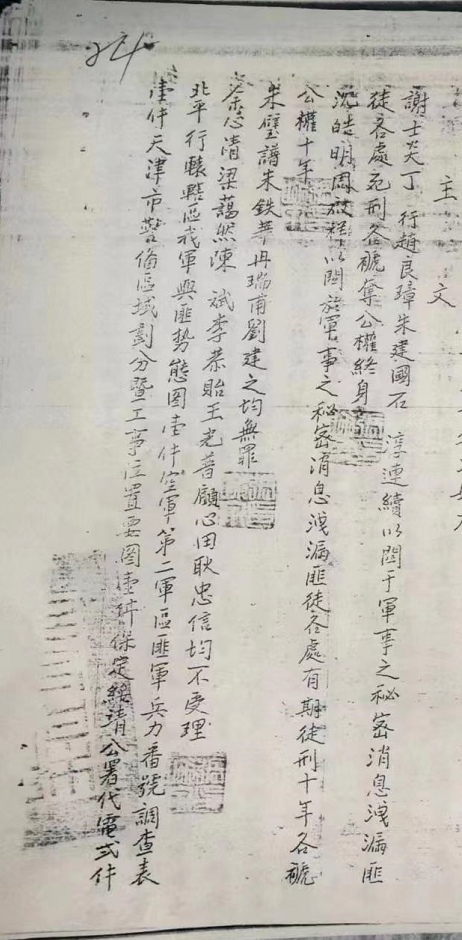 主 文
謝士炎丁 行趙良璋朱建國石 淳連續以關于軍事之秘密消息洩漏匪
徒各處死刑各褫奪公權終身
沈皓明周 以關於軍事之秘密消息洩漏匪徒各處有期徒刑十年各褫
公權十年
朱璧譜朱鉄華冉瑞甫劉建之均無罪
余心清梁藹然陳 斌李恭貽王光普顧心田耿忠信均不受理
北平行轅轄區我軍與匪勢態圖壹件空軍第二軍區匪軍兵力番號調查表
壹件天津市警備區域劃分暨工事位置要圖壹件保定綏靖公署代電弍件